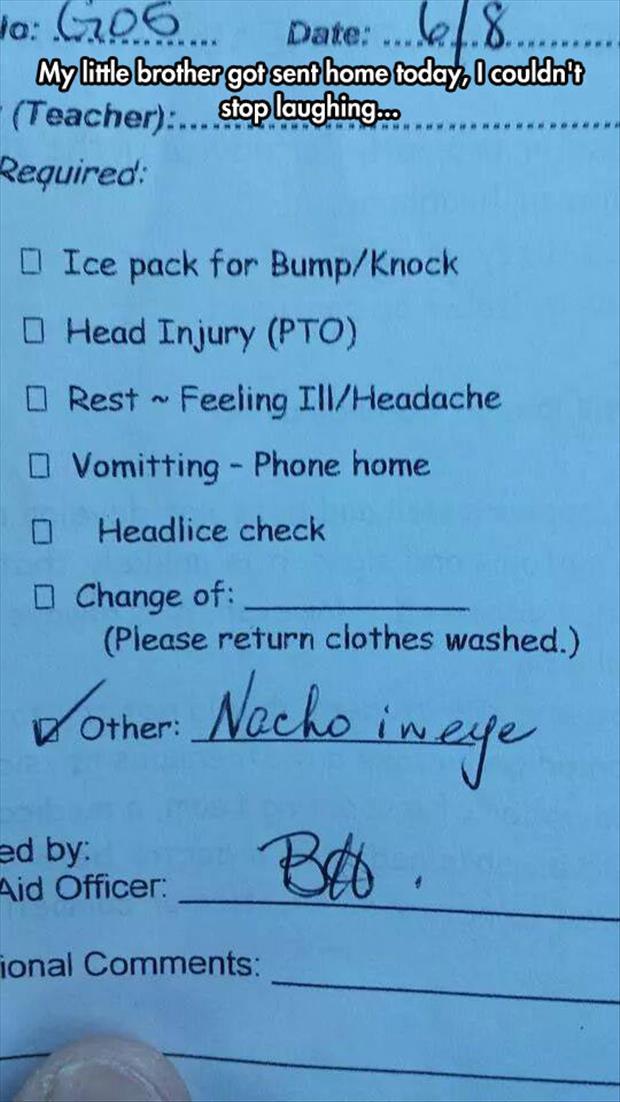 No: G06 Date: 6/8
My little brother got sent home today, I couldn't
stop laughing...
(Teacher):
Required:
Ice pack for Bump/Knock
Head Injury (PTO)
Rest ~ Feeling Ill/Headache
Vomitting - Phone home
Headlice check
Change of:
(Please return clothes washed.)
Other: Nacho in eye
ed by:
Aid Officer:
ional Comments: